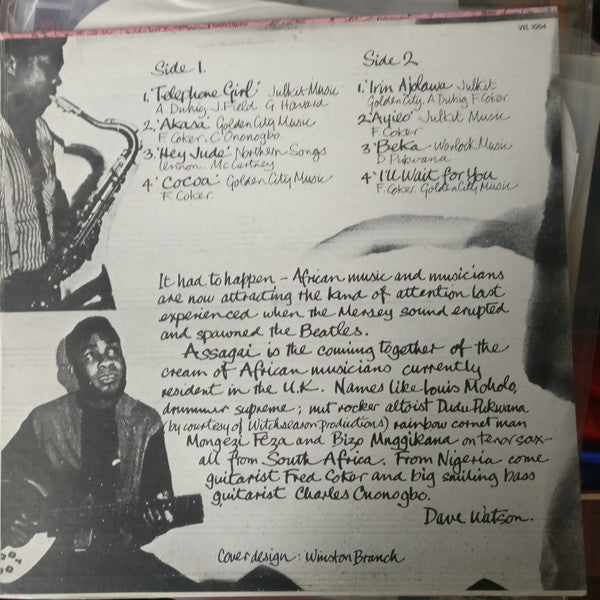 VEL 1004
Side 1.
1. 'Telephone Girl' Julkit Music
A. Duhig J. Field G. Havard
2. 'Akasa' Golden City Music
F. Coker, C. Ononogbo.
3. 'Hey Jude' Northern Songs
Lennon. McCartney
4 'Cocoa' Golden City Music
F. Coker.
Side 2
1. 'Irin Ajolawa' Julkit
Golden City, A. Duhig, F. Coker
2. 'Ayieo' Julkit Music
F. Coker
3 'Beka' Warlock Music
D. Pukwana
4 'I'll Wait for You
F. Coker. Golden City Music
It had to happen – African music and musicians
are now attracting the kind of attention last
experienced when the Mersey sound erupted
and spawned the Beatles.
Assagai is the coming together of the
cream of African musicians currently
resident in the U.K. Names like Louis Moholo,
drummer supreme; nut rocker altoist Dudu Pukwana
(by courtesy of Witchseason Productions) rainbow cornet man
Mongezi Feza and Bizo Mnggikana on tenor sax–
all from South Africa. From Nigeria come
guitarist Fred Coker and big smiling bass
guitarist Charles Ononogbo.
Dave Watson.
Cover design: Winston Branch